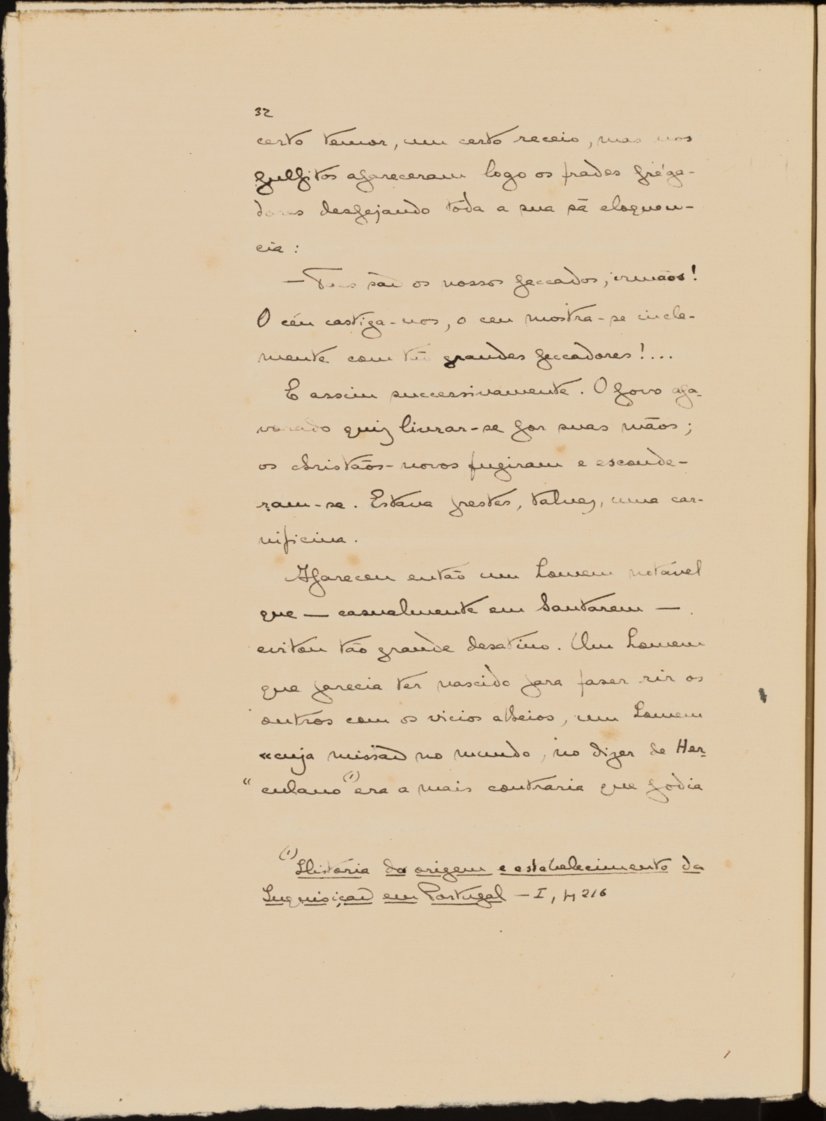 32
certo temor, um certo receio, mas nos
pulpitos apareceram logo os frades préga-
dores despejando tôda a sua sã eloquen-
cia :
— são os nossos peccados, irmãos!
O céu castiga-nos, o ceu mostra-se incle-
mente com tão grandes peccadores!...
E assim successivamente. O povo apa-
vorado quiz livrar-se por suas mãos;
os christãos-novos fugiram e esconde-
ram-se. Estava prestes, talvez, uma car-
nificina.
Apareceu então um homem notável
que — casualmente em Santarem —
evitou tão grande desatino. Um homem
que parecia ter nascido para faser rir os
outros com os vicios alheios, um homem
«cuja missão no mundo, no dizer de Her-
"culano (1) era a mais contraria que podia
(1) História da origem e estabelecimento da
Inquisição em Portugal — I, p 216